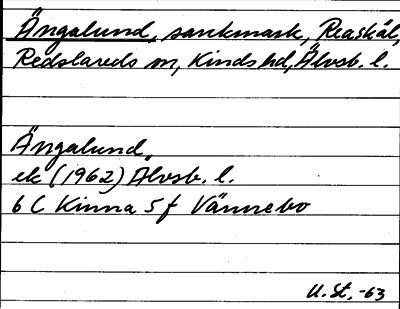 Ängalund, sankmark, Reaskäl,
Redslareds sn, Kinds hd, Älvsb. l.
Ängalund
ek (1962) Älvsb. l.
6 C Kinna 5 f Vännebo
U. St. -63